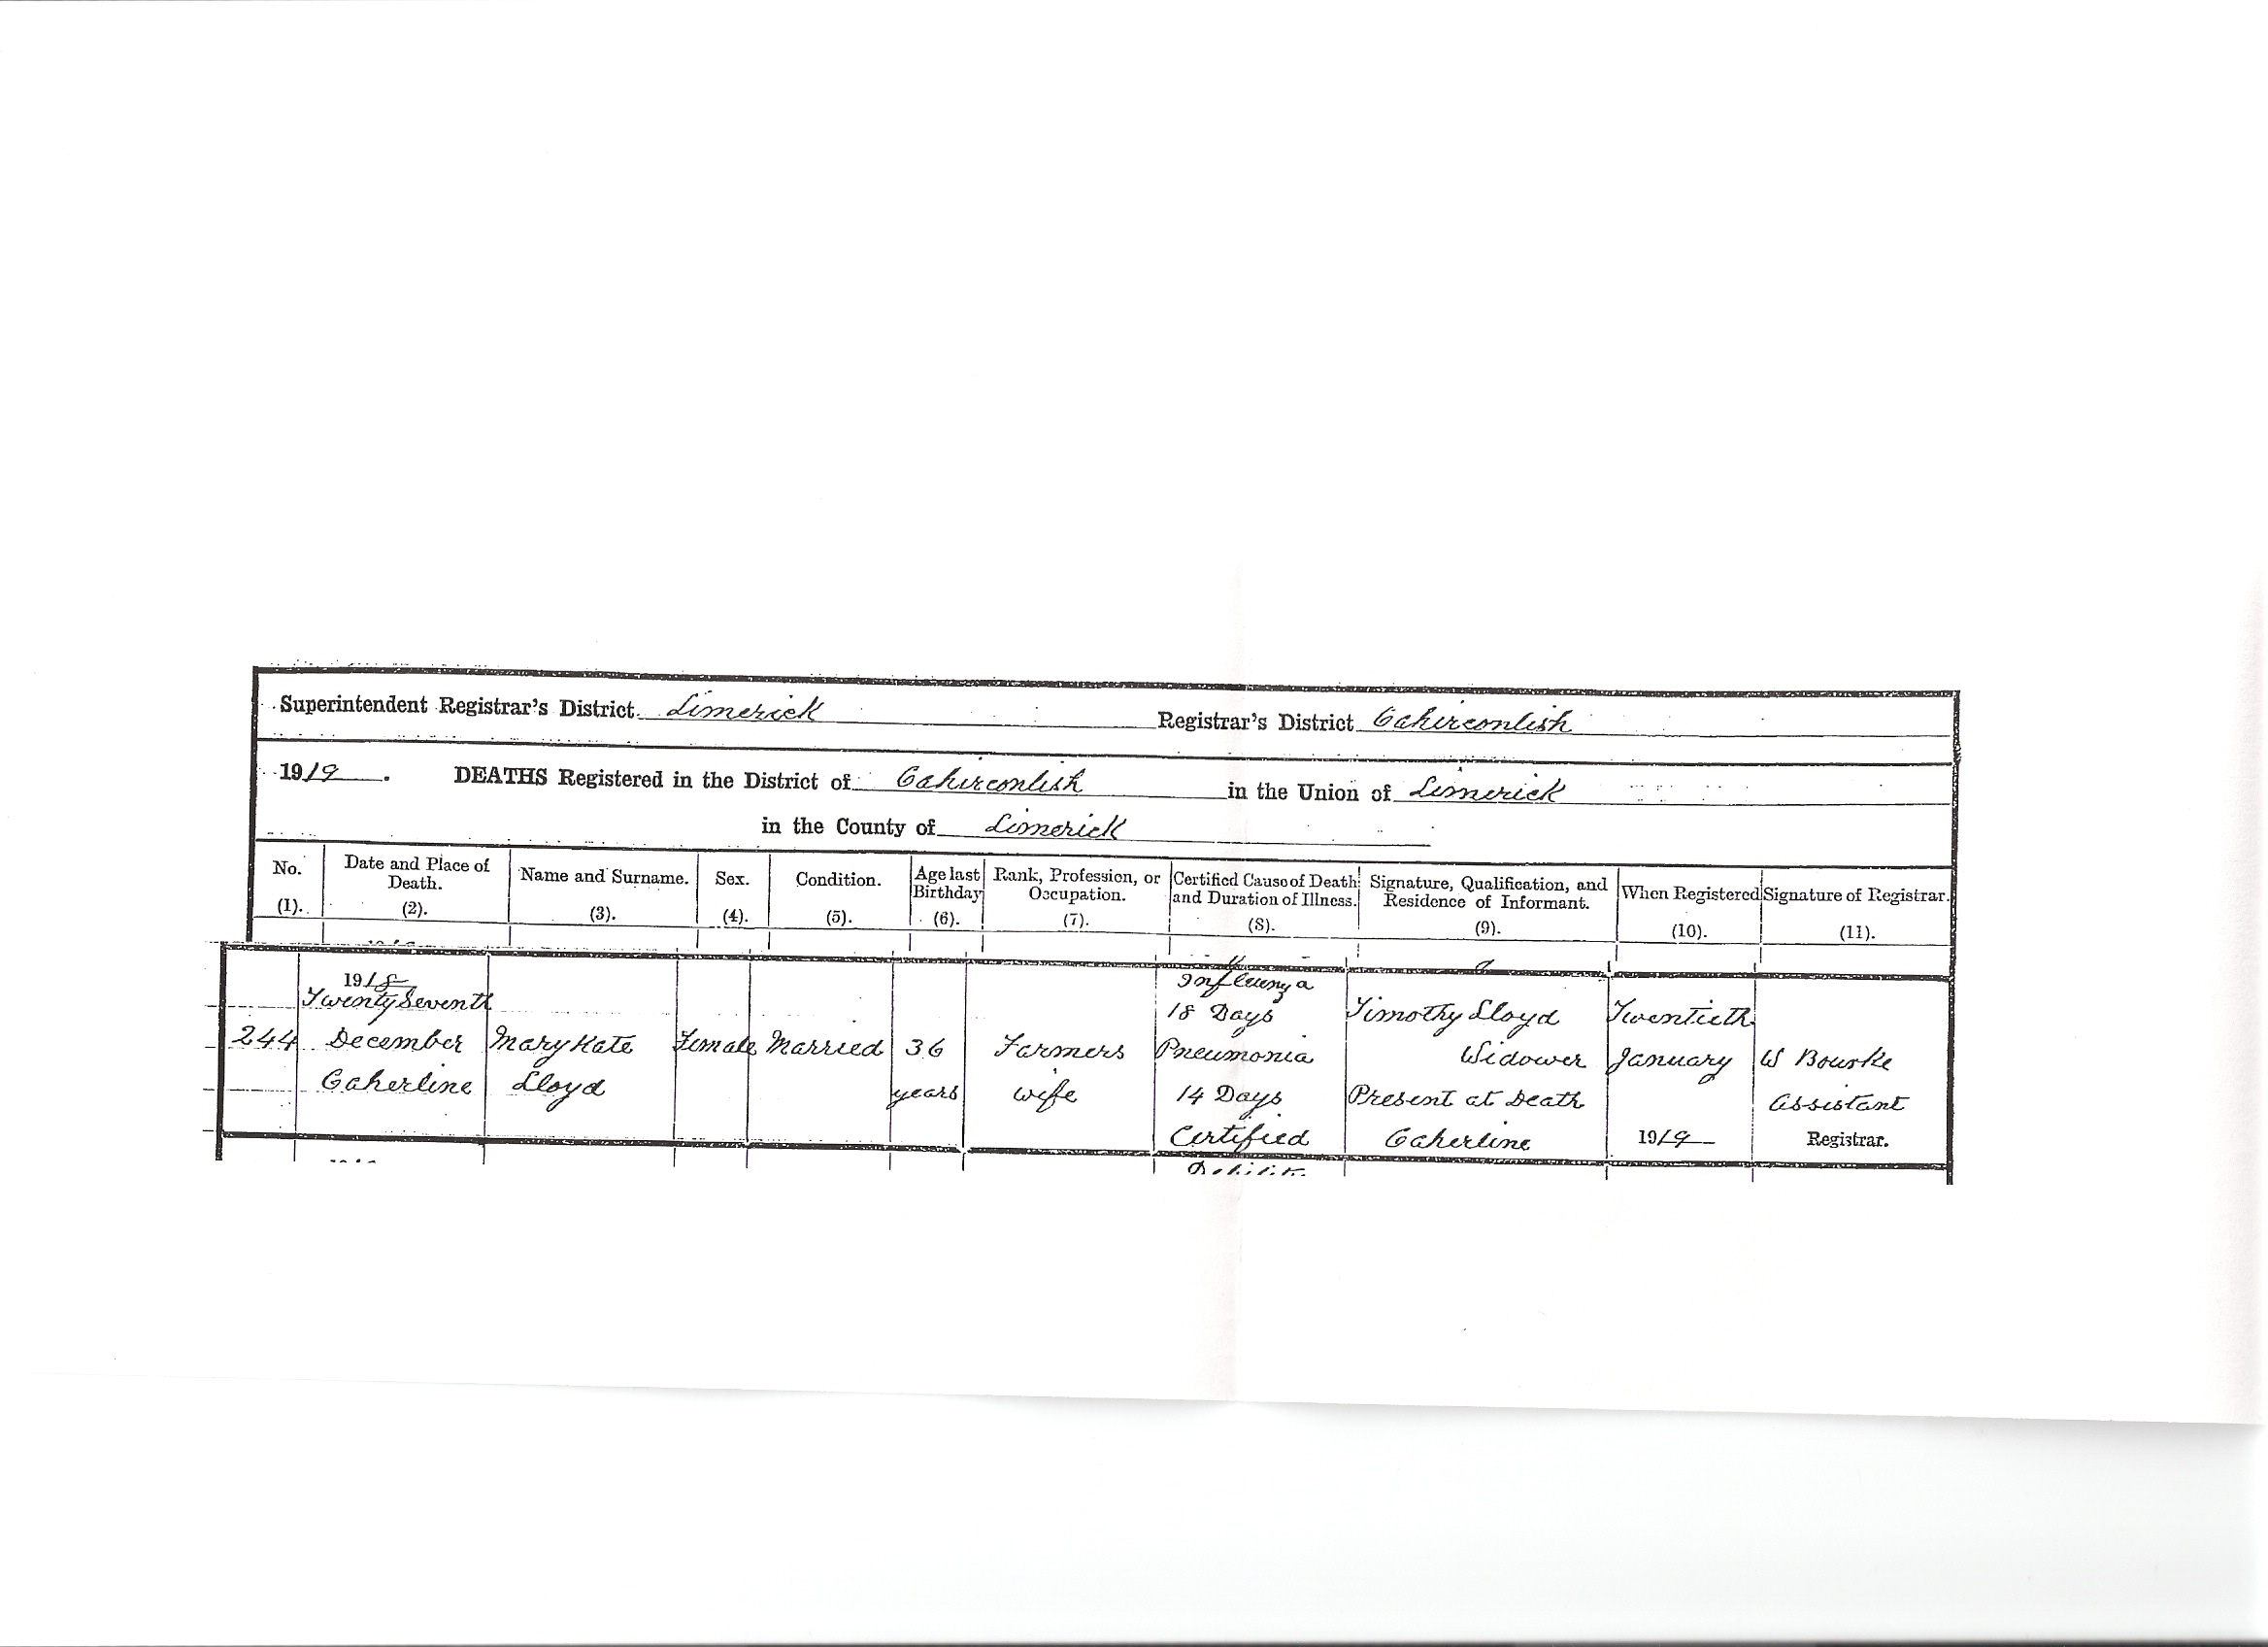 Superintendent Registrar's District Limerick Registrar's District Cahirconlish
1919. DEATHS Registered in the District of Cahirconlish in the Union of Limerick
in the County of Limerick
No. (1).
Date and Place of Death. (2).
Name and Surname. (3).
Sex. (4).
Condition. (5).
Age last Birthday (6).
Rank, Profession, or Occupation. (7).
Certified Cause of Death and Duration of Illness. (8).
Signature, Qualification, and Residence of Informant. (9).
When Registered (10).
Signature of Registrar. (11).
244
1918
Twenty Seventh
December
Caherline
Mary Kate
Lloyd
Female
Married
36
years
Farmers
wife
Influenza
18 Days
Pneumonia
14 Days
Certified
Timothy Lloyd
Widower
Present at Death
Caherline
Twentieth
January
1919
W Bourke
Assistant
Registrar.